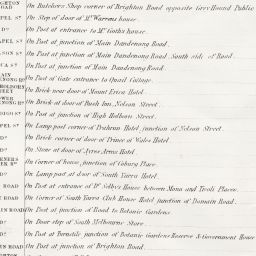 On Butchers Shop corner of Brighton Road opposite Grey Hound Public
APEL ST On Step of door of Mr Warrens house.
Do On Post at entrance to Mr Goths house.
APEL ST On Post at junction of Main Dandenong Road.
SON ST On Post at junction of Main Dandenong Road South side of Road.
CA ST On Post at junction of Main Dandenong Road.
On Post of Gate entrance to Quail Cottage.
HOLBORN On Brick near door of Mount Erica Hotel.
On Brick at door of Bush Inn Nelson Street.
On Post at junction of High Holborn Street.
PEL ST On Lamp post corner of Prahran Hotel junction of Nelson Street.
Do On Brick corner of door of Prince of Wales Hotel
Do On Stone at door of Ayres Arms Hotel.
On Corner of house, junction of Coburg Place.
Do On Lamp post at door of South Yarra Hotel.
ROAD On Post at entrance of Dr Selbys House between Mona and Tivoli Places.
ROAD On Corner of South Yarra Club House Hotel junction of Domain Road.
ROAD On Post at junction of Road to Botanic Gardens
Do On Door step of South Melbourne Store.
Do On Post at Ferntile junction of Botanic Gardens Reserve & Government House
ROAD On Post at junction of Brighton Road.